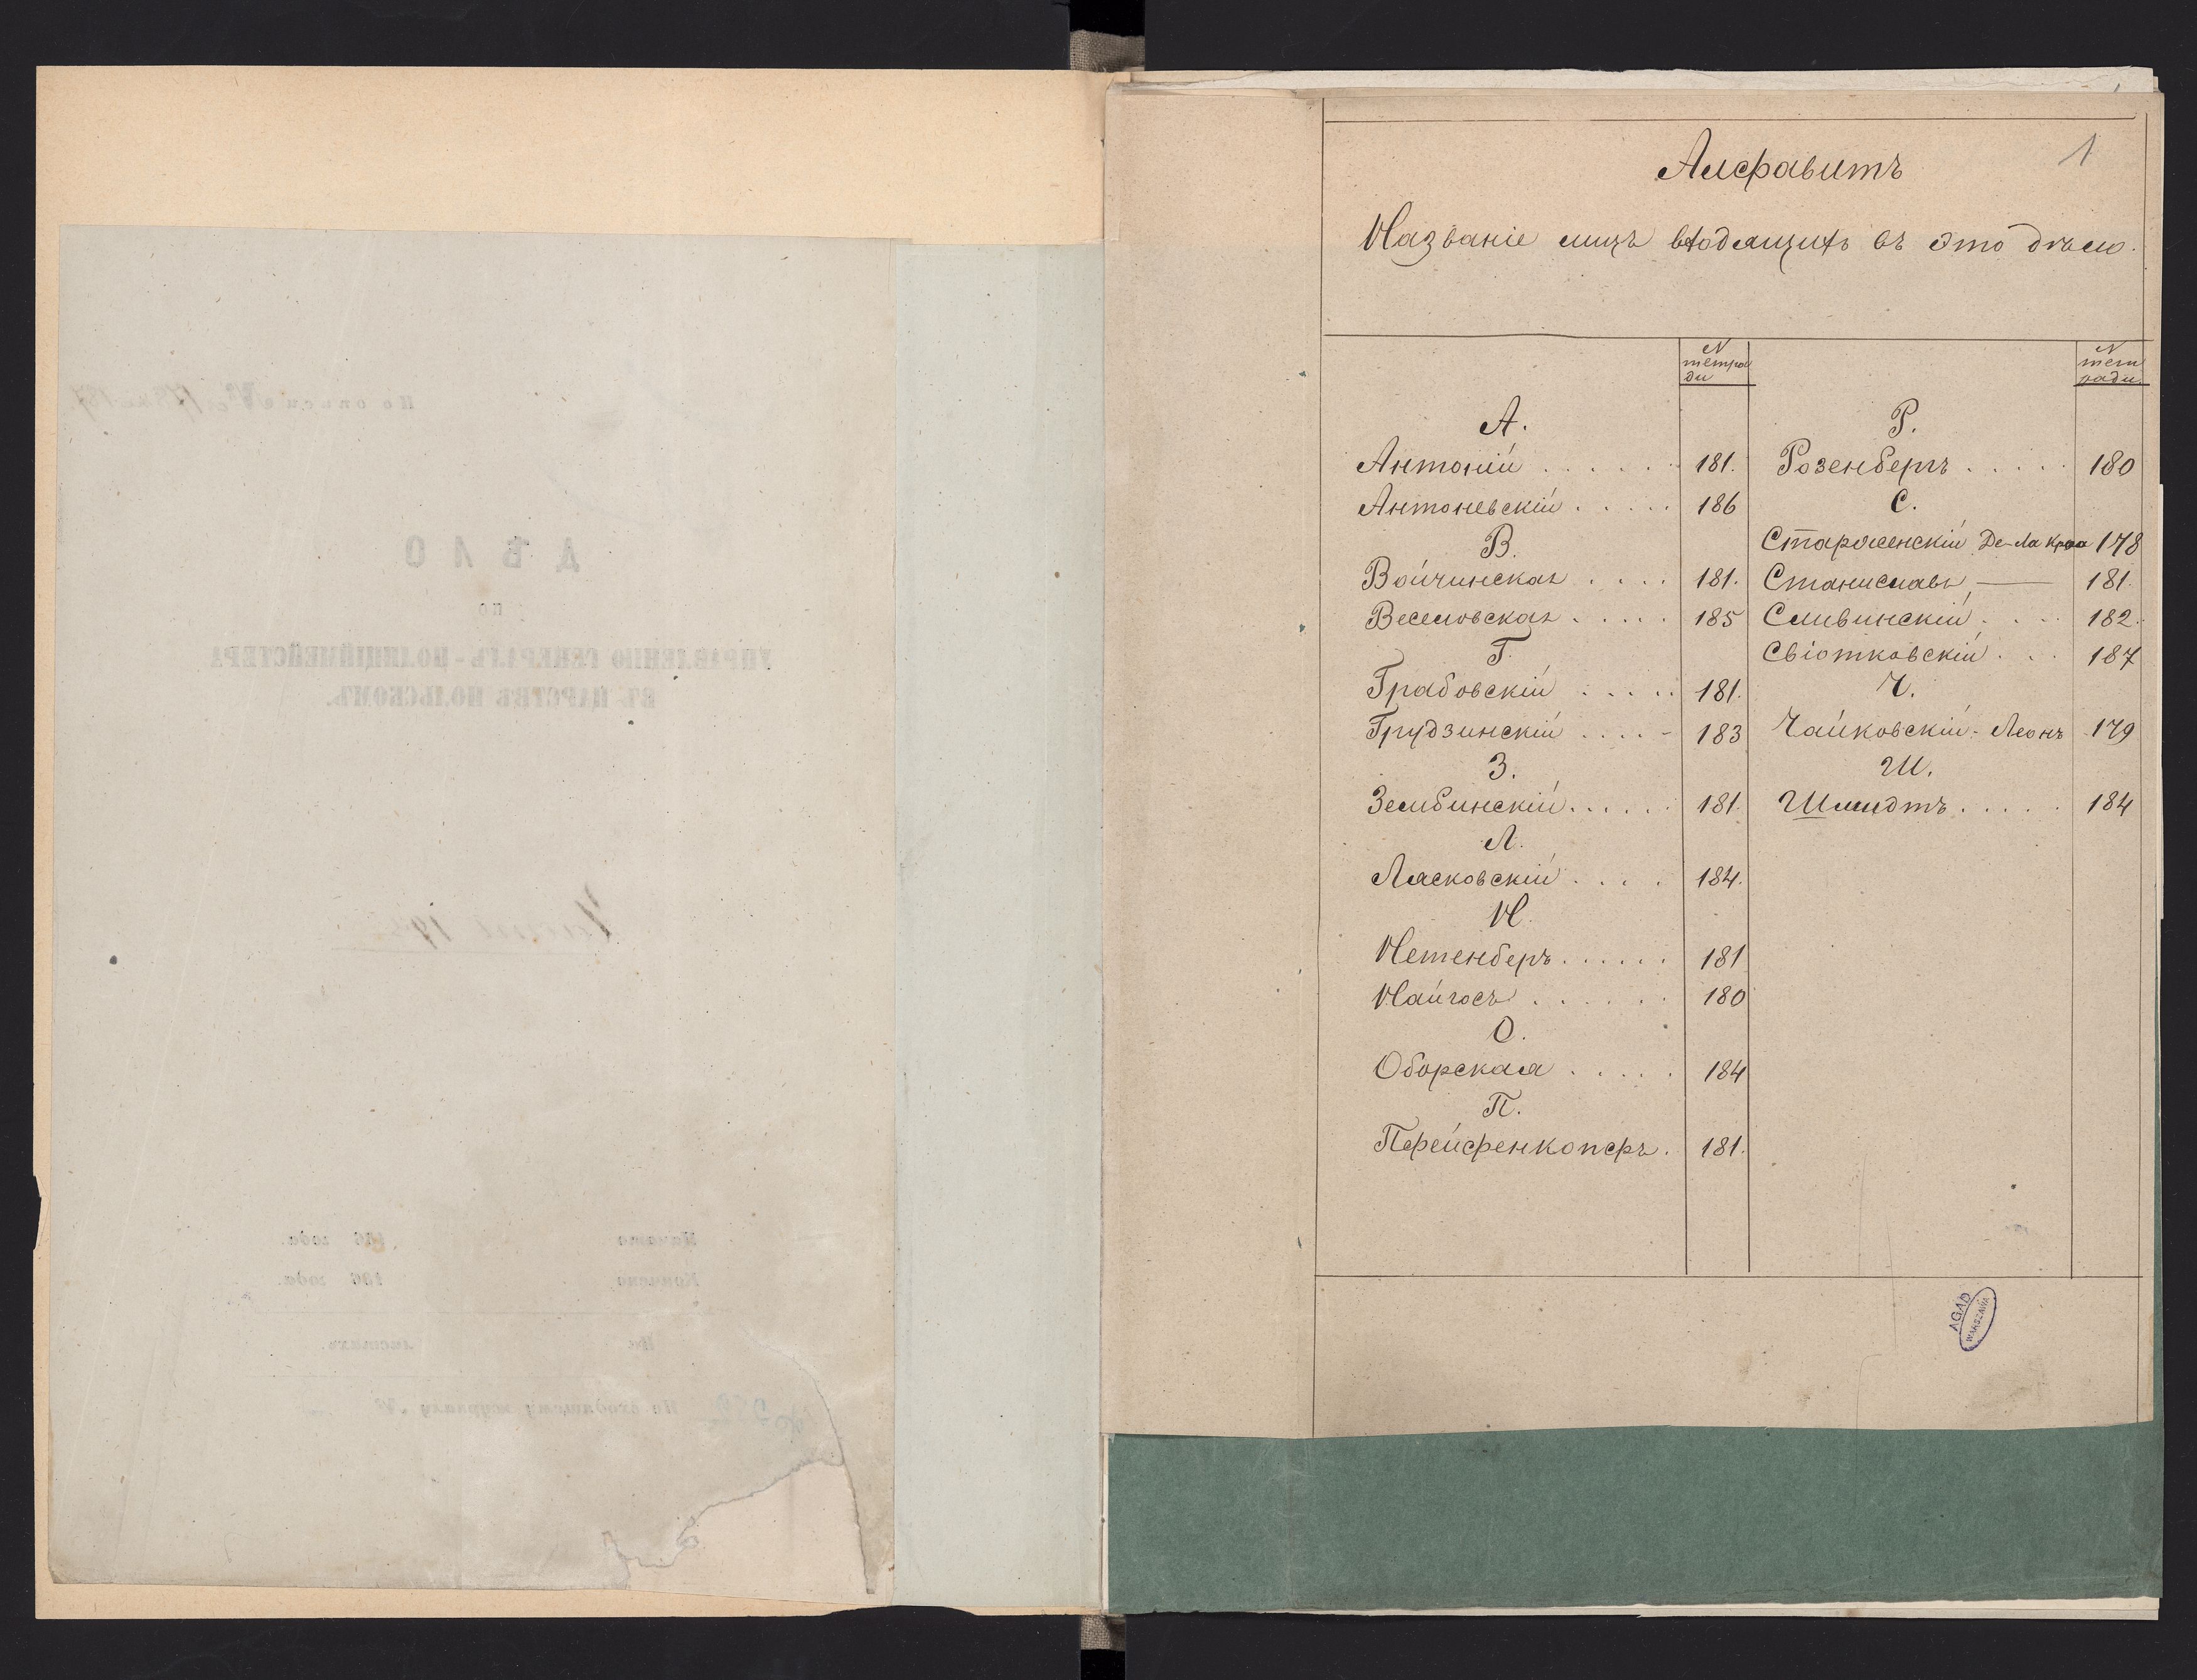 ДѢЛО
ПО
УПРАВЛЕНІЮ ГЕНЕРАЛЪ-ПОЛИЦІЙМЕЙСТЕРА
ВЪ ЦАРСТВѢ ПОЛЬСКОМЪ.
Начато 186 года.
Кончено 186 года.
На листахъ.
По входящему журналу №
1
Алфавитъ
Названіе лицъ входящихъ въ это дѣло.
N тетра ди N тет ради
А.
Антоній . . . . . . 181.
Антоневскій . . . . . 186
В.
Войчинская . . . . 181.
Веселовская . . . . . 185
Г.
Грабовскій . . . . . 181.
Грудзинскій . . . . - 183
З.
Зембинскій . . . . . 181.
Л.
Лясковскій . . . . 184.
Н.
Нетенберъ . . . . . . 181
Найгосъ . . . . . . 180
О.
Оборская . . . . . 184
П.
Пфейфенкопфъ . 181.
Р.
Розенбергъ . . . . . 180
С.
Староленскій Де-ла 178
Станиславъ, — 181.
Сливинскій . . . . 182.
Свіотковскій . . . 187
Ч.
Чайковскій - Леонъ 179
Ш.
Шмидтъ . . . . . 184
AGAD
WARSZAWA